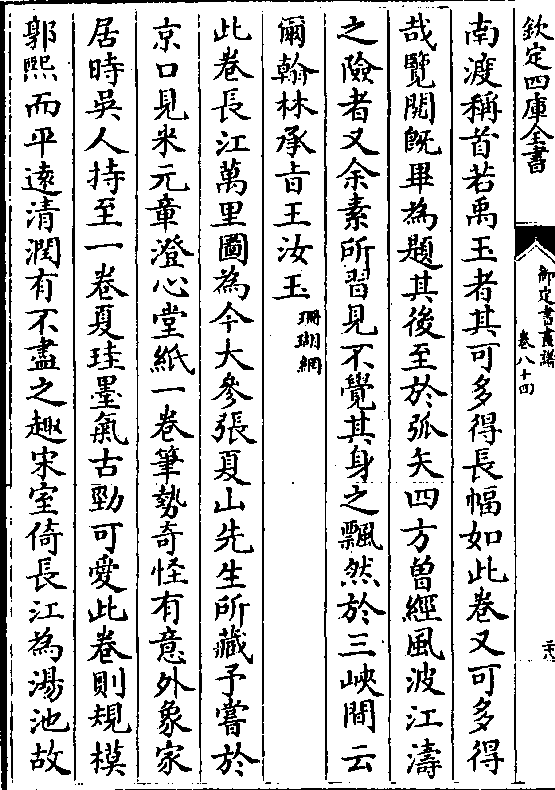 欽定四庫全書
御定書畫譜
卷八十四
南渡稱首若禹玉者其可多得長幅如此卷又可多得
哉覽閱既畢為題其後至於弧矢四方曾經風波江濤
之險者又余素所習見不覺其身之飄然於三峽間云
爾翰林承㫖王汝玉
珊瑚網
此卷長江萬里圖為今大參張夏山先生所藏予嘗於
京口見米元章澄心堂紙一卷筆勢奇怪有意外象家
居時吳人持至一卷夏珪墨氣古勁可愛此卷則規模
郭熙而平逺清潤有不盡之趣宋室倚長江為湯池故